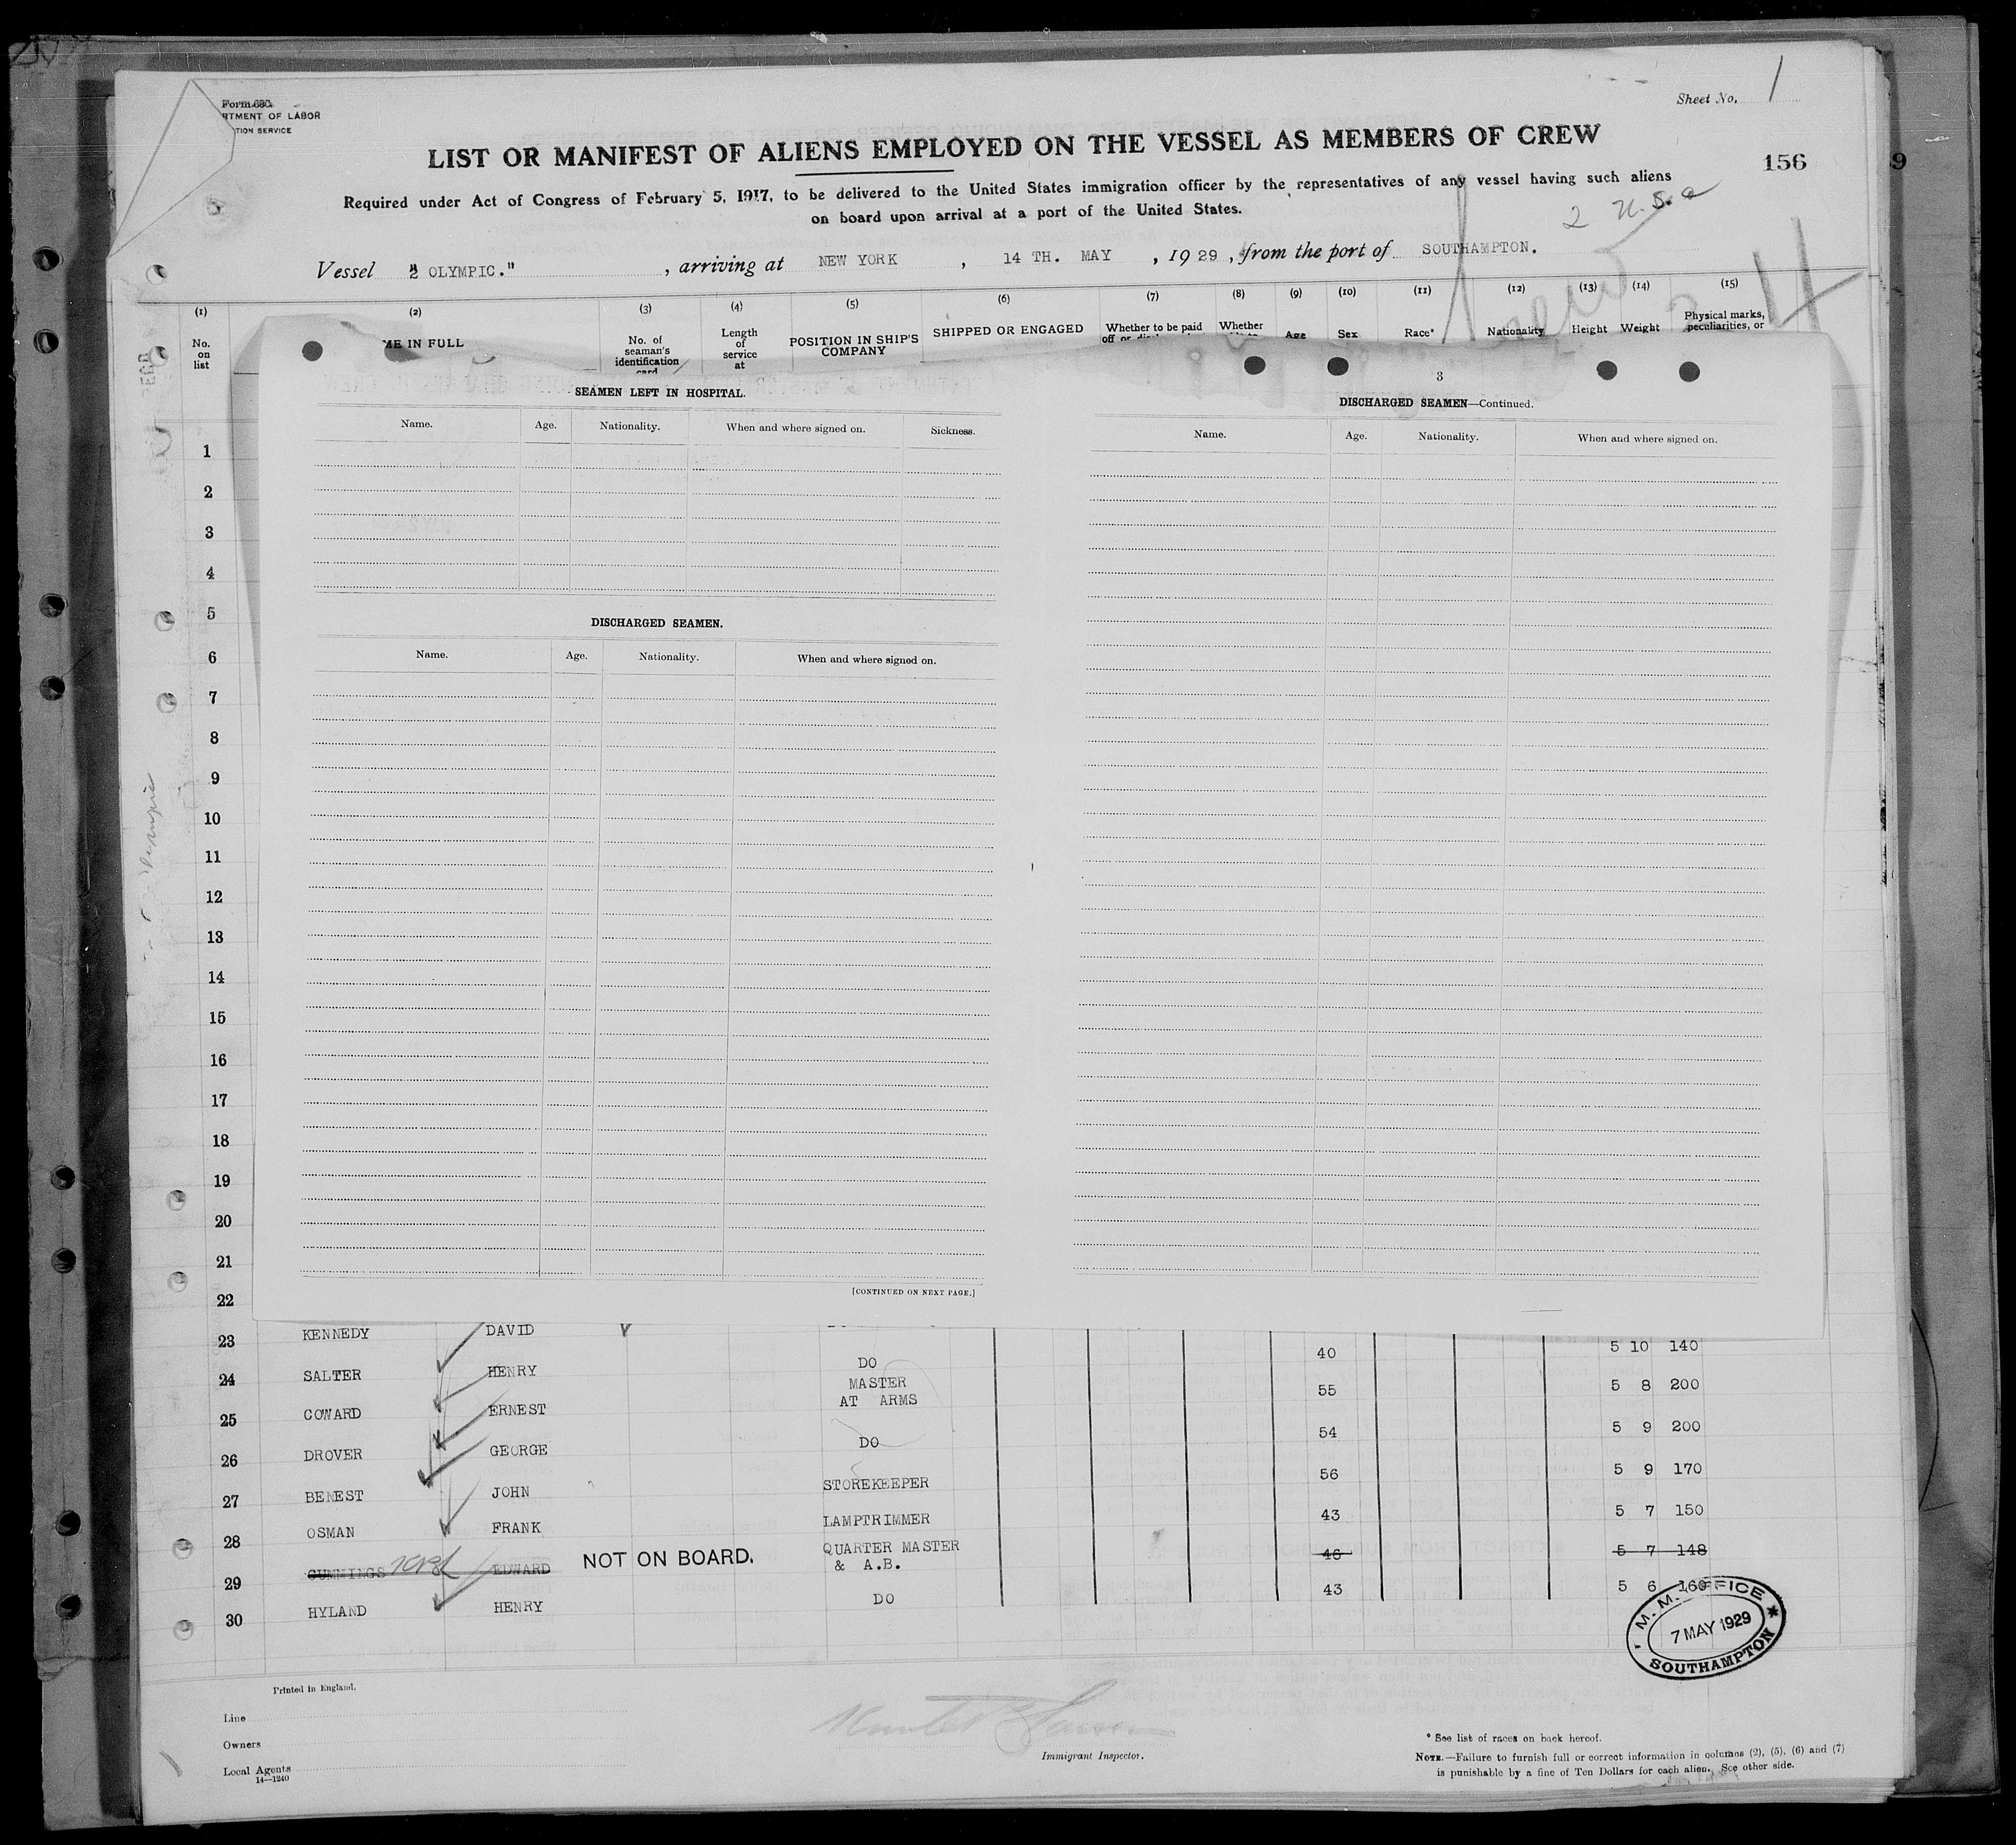 Form 680
RTMENT OF LABOR
TION SERVICE
Sheet No. 1
LIST OR MANIFEST OF ALIENS EMPLOYED ON THE VESSEL AS MEMBERS OF CREW
156
9
Required under Act of Congress of February 5, 1917, to be delivered to the United States immigration officer by the representatives of any vessel having such aliens
on board upon arrival at a port of the United States.
2 U.S.a
Vessel " OLYMPIC." , arriving at NEW YORK , 14 TH. MAY , 1929 , from the port of SOUTHAMPTON.
(1) (2) (3) (4) (5) (6) (7) (8) (9) (10) (11) (12) (13) (14) (15)
No. on list
ME IN FULL
No. of seaman's identification card
Length of service at
POSITION IN SHIP'S COMPANY
SHIPPED OR ENGAGED
Whether to be paid
off or
Whether
Age
Sex
Race*
Nationality
Height
Weight
Physical marks, peculiarities, or
SEAMEN LEFT IN HOSPITAL.
Name. Age. Nationality. When and where signed on. Sickness.
DISCHARGED SEAMEN.
Name. Age. Nationality. When and where signed on.
[CONTINUED ON NEXT PAGE.]
3
DISCHARGED SEAMEN—Continued.
Name. Age. Nationality. When and where signed on.
1
2
3
4
5
6
7
8
9
10
11
12
13
14
15
16
17
18
19
20
21
22
23 KENNEDY DAVID
5 10 140
24 SALTER HENRY DO 40
5 8 200
25 COWARD ERNEST MASTER AT ARMS 55
5 9 200
26 DROVER GEORGE DO 54
5 9 170
27 BENEST JOHN STOREKEEPER 56
5 7 150
28 OSMAN FRANK LAMPTRIMMER 43
5 7 148
29 CUMMINGS EDWARD NOT ON BOARD. QUARTER MASTER & A.B. 46
5 6 160
30 HYLAND HENRY DO 43
M. M. OFFICE
7 MAY 1929
SOUTHAMPTON
Printed in England.
Line
Owners
Local Agents
14—1240
Immigrant Inspector.
* See list of races on back hereof.
NOTE.—Failure to furnish full or correct information in columns (2), (5), (6) and (7)
is punishable by a fine of Ten Dollars for each alien. See other side.